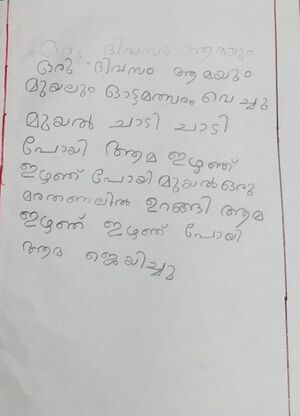 ഒരു ദിവസം ആമയും
ഒരു ദിവസം ആമയും
മുയലും ഓട്ടമത്സരം വെച്ചു
മുയൽ ചാടി ചാടി
പോയി ആമ ഇഴഞ്ഞ്
ഇഴഞ്ഞ് പോയി മുയൽ ഒരു
മരത്തണലിൽ ഉറങ്ങി ആമ
ഇഴഞ്ഞ് ഇഴഞ്ഞ് പോയി
ആമ ജെയിച്ചു